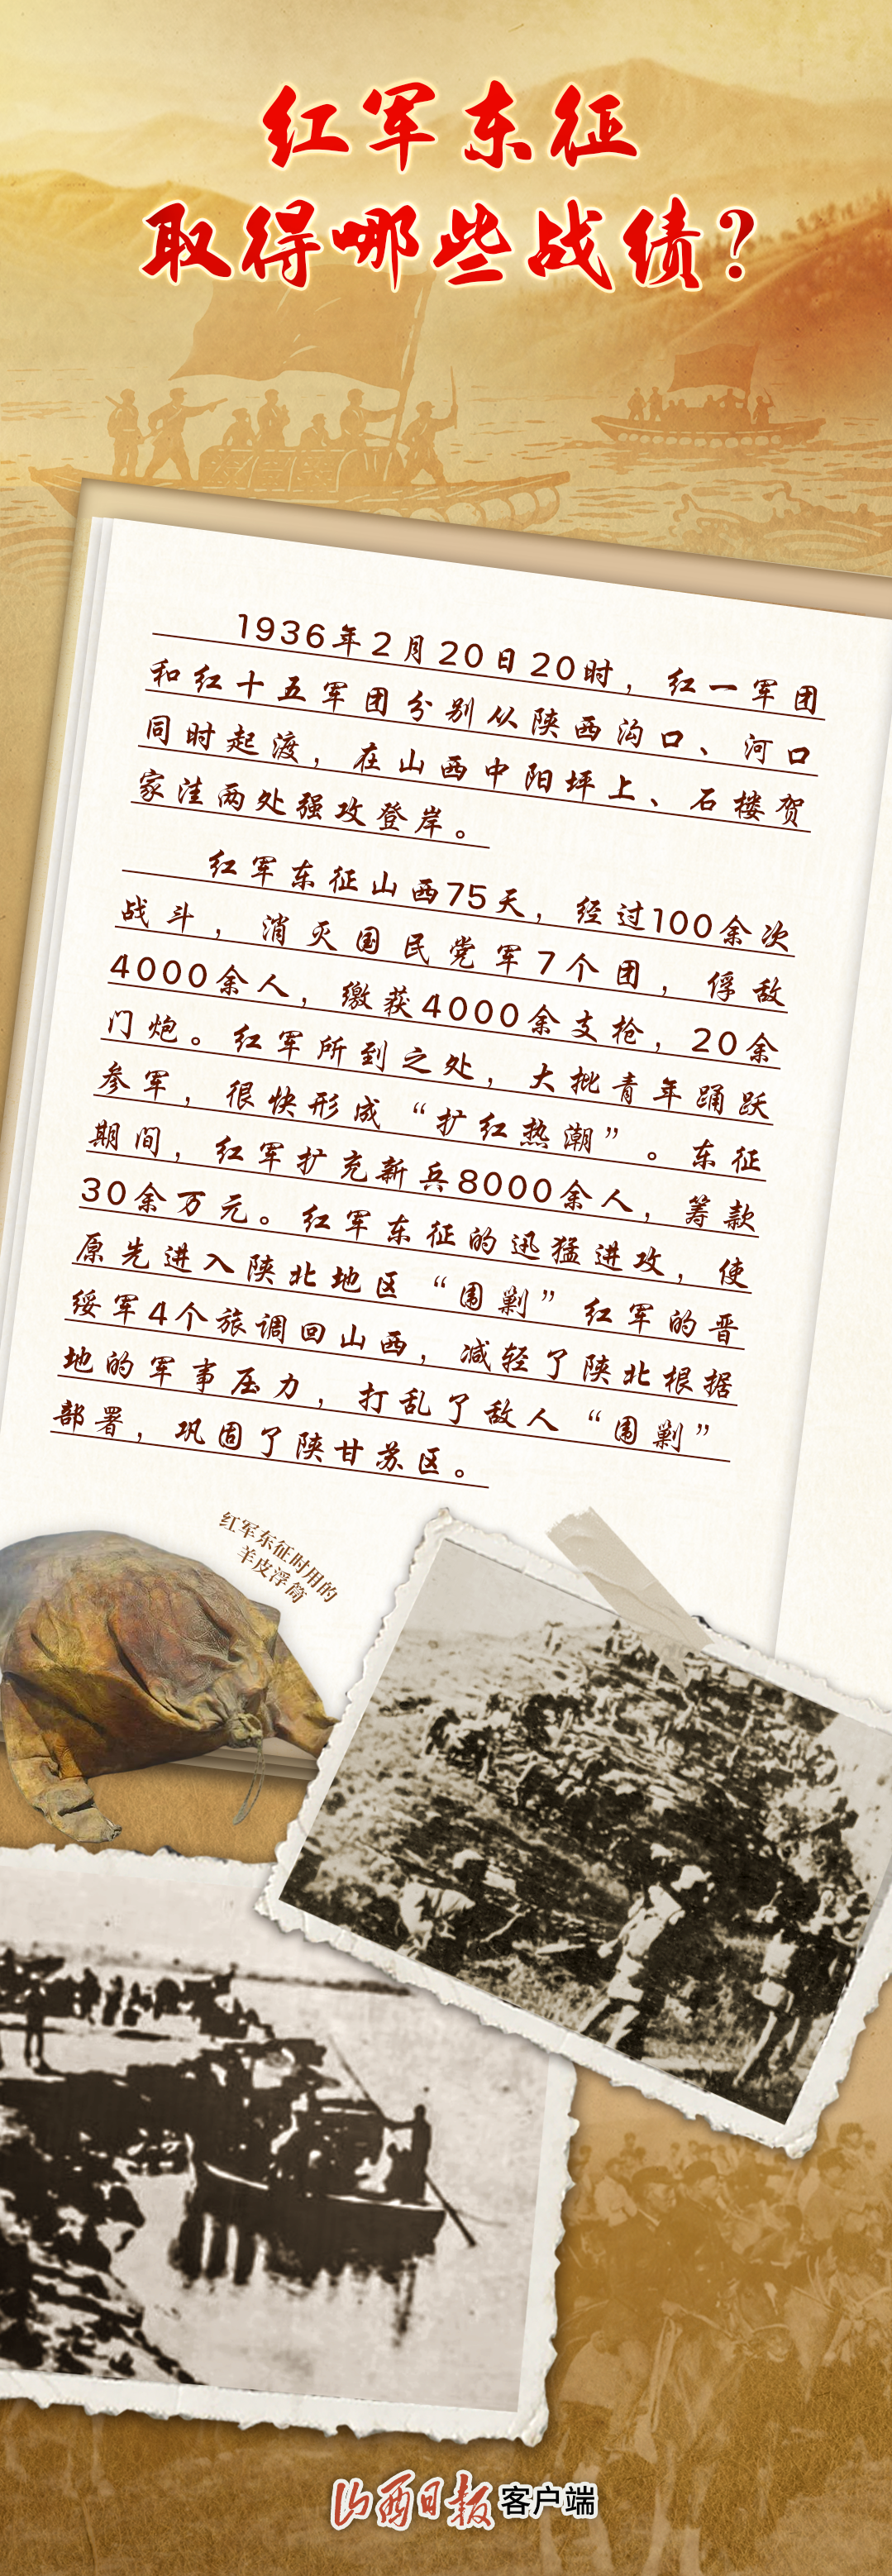 红军东征
取得哪些战绩?
1936年2月20日20时，红一军团
和红十五军团分别从陕西沟口、河口
同时起渡，在山西中阳坪上、石楼贺
家洼两处强攻登岸。
红军东征山西75天，经过100余次
战斗，消灭国民党军7个团，俘敌
4000余人，缴获4000余支枪，20余
门炮。红军所到之处，大批青年踊跃
参军，很快形成“扩红热潮”。东征
期间，红军扩充新兵8000余人，筹款
30余万元。红军东征的迅猛进攻，使
原先进入陕北地区“围剿”红军的晋
绥军4个旅调回山西，减轻了陕北根据
地的军事压力，打乱了敌人“围剿”
部署，巩固了陕甘苏区。
红军东征时用的
羊皮浮筒
山西日报客户端